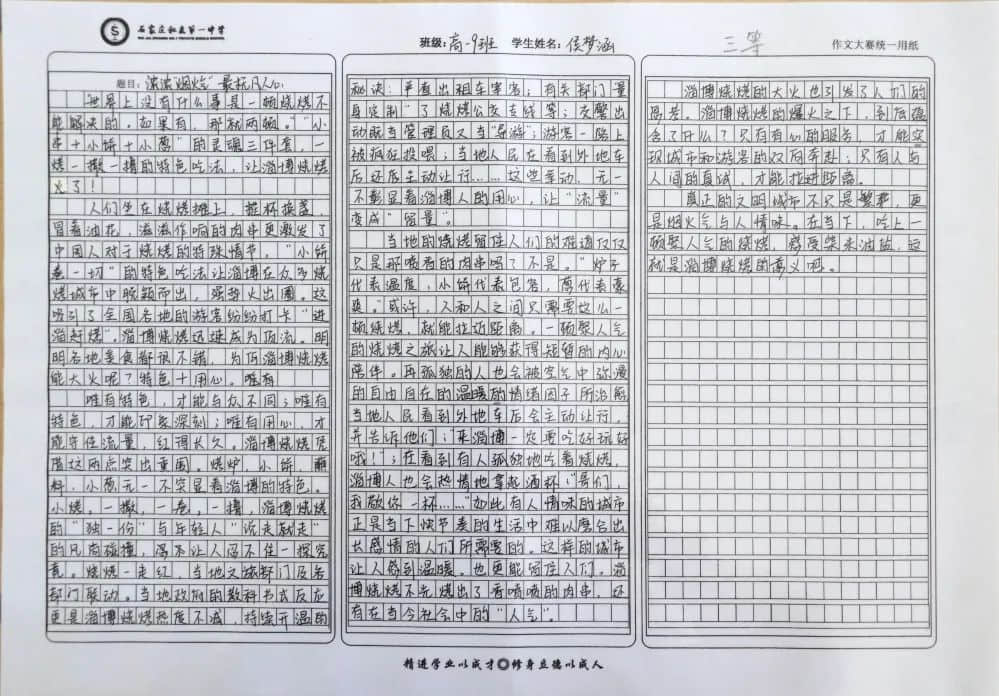 石家庄私立第一中学
班级：高一9班 学生姓名：侯梦涵
三等
作文大赛统一用纸
题目：浓浓“烟火” 最抚凡人心
世界上没有什么事是一顿烧烤不
能解决的。如果有，那就两顿。“小
串+小饼+小葱”的灵魂三件套，一
烤一撒一捲的特色吃法，让淄博烧烤
火了！
人们坐在烧烤摊上，推杯换盏，
冒着油花，滋滋作响的肉串更激发了
中国人对于烧烤的特殊情节。“小饼
卷一切”的特色吃法让淄博在众多烧
烤城市中脱颖而出，强势火出圈。这
吸引了全国各地的游客纷纷打卡“进
淄赶烤”。淄博烧烤迅速成为顶流。明
明各地美食都很不错，为何淄博烧烤
能大火呢？特色+用心。唯有
唯有特色，才能与众不同；唯有
特色，才能印象深刻；唯有用心，才
能守住流量，红得长久。淄博烧烤凭
借这两点突出重围。烤炉，小饼，蘸
料，小葱无一不突显着淄博的特色。
小烤。一撒，一卷，一捲，淄博烧烤
的“独一份”与年轻人“说走就走”
的凡尚碰撞，同不让人忍不住一探究
竟。烧烤一走红，当地文旅部门及各
部门联动。当地政府的教科书式反应
更是淄博烧烤热度不减，持续升温的
秘诀：声看出租车宰客；有关部门量
身定制“了烧烤公交专线等；交警出
动既当管理员又当“导游”；游客一路上
被疯狂投喂；当地人民在看到外地车
后还后主动让行……这些举动，无一
不彰显着淄博人的用心，让“流量”
变成“留量”。
当地的烧烤留住人们的难道仅仅
只是那喷香的肉串吗？不是。“炉子
代表温度，小饼代表包容，葱代表豪
爽。”或许，人和人之间只需要这么一
顿烧烤，就能拉近距离。一顿聚人气
的烧烤之旅让人能够获得短暂的内心
陪伴。再孤独的人也会被空气中弥漫
的自由自在的温暖的情绪因子所治愈
当地人民看到外地车后会主动让行，
并告诉他们：“来淄博一定要吃好玩好
哦！”；在看到有人孤独地吃着烧烤，
淄博人也会热情地拿起酒杯：“哥们，
我敬你一杯……”如此有人情味的城市
正是当下快节奏的生活中难以磨合出
长感情的人们所需要的。这样的城市
让人感到温暖。也更能留住人们。淄
博烧烤不光烤出了香喷喷的肉串，还
有在当今社会中的“人气”。
淄博烧烤的大火也引发了人们的
思考。淄博烧烤的爆火之下，到底蕴
含了什么？只有有心的服务，才能实
现城市和游客的双向奔赴；只有人与
人间的真诚，才能拉进距离。
真正的文明城市不只是繁华，更
是烟火气与人情味。在当下，吃上一
顿聚人气的烧烤，感受柴米油盐，这
就是淄博烧烤的意义吧。
精进学业以成才 修身立德以成人